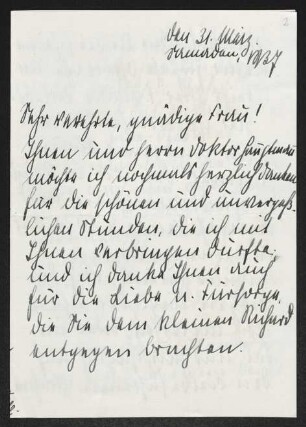 den 31. März.
Samaden, 1937
Sehr verehrte, gnädige Frau!
Ihnen und Herrn Doktor Hauptmann
möchte ich nochmals herzlich danken
für die schönen und unvergeß-
lichen Stunden, die ich mit
Ihnen verbringen durfte
und ich danke Ihnen auch
für die Liebe u. Fürsorge,
die Sie dem kleinen Richard
entgegen brachten.